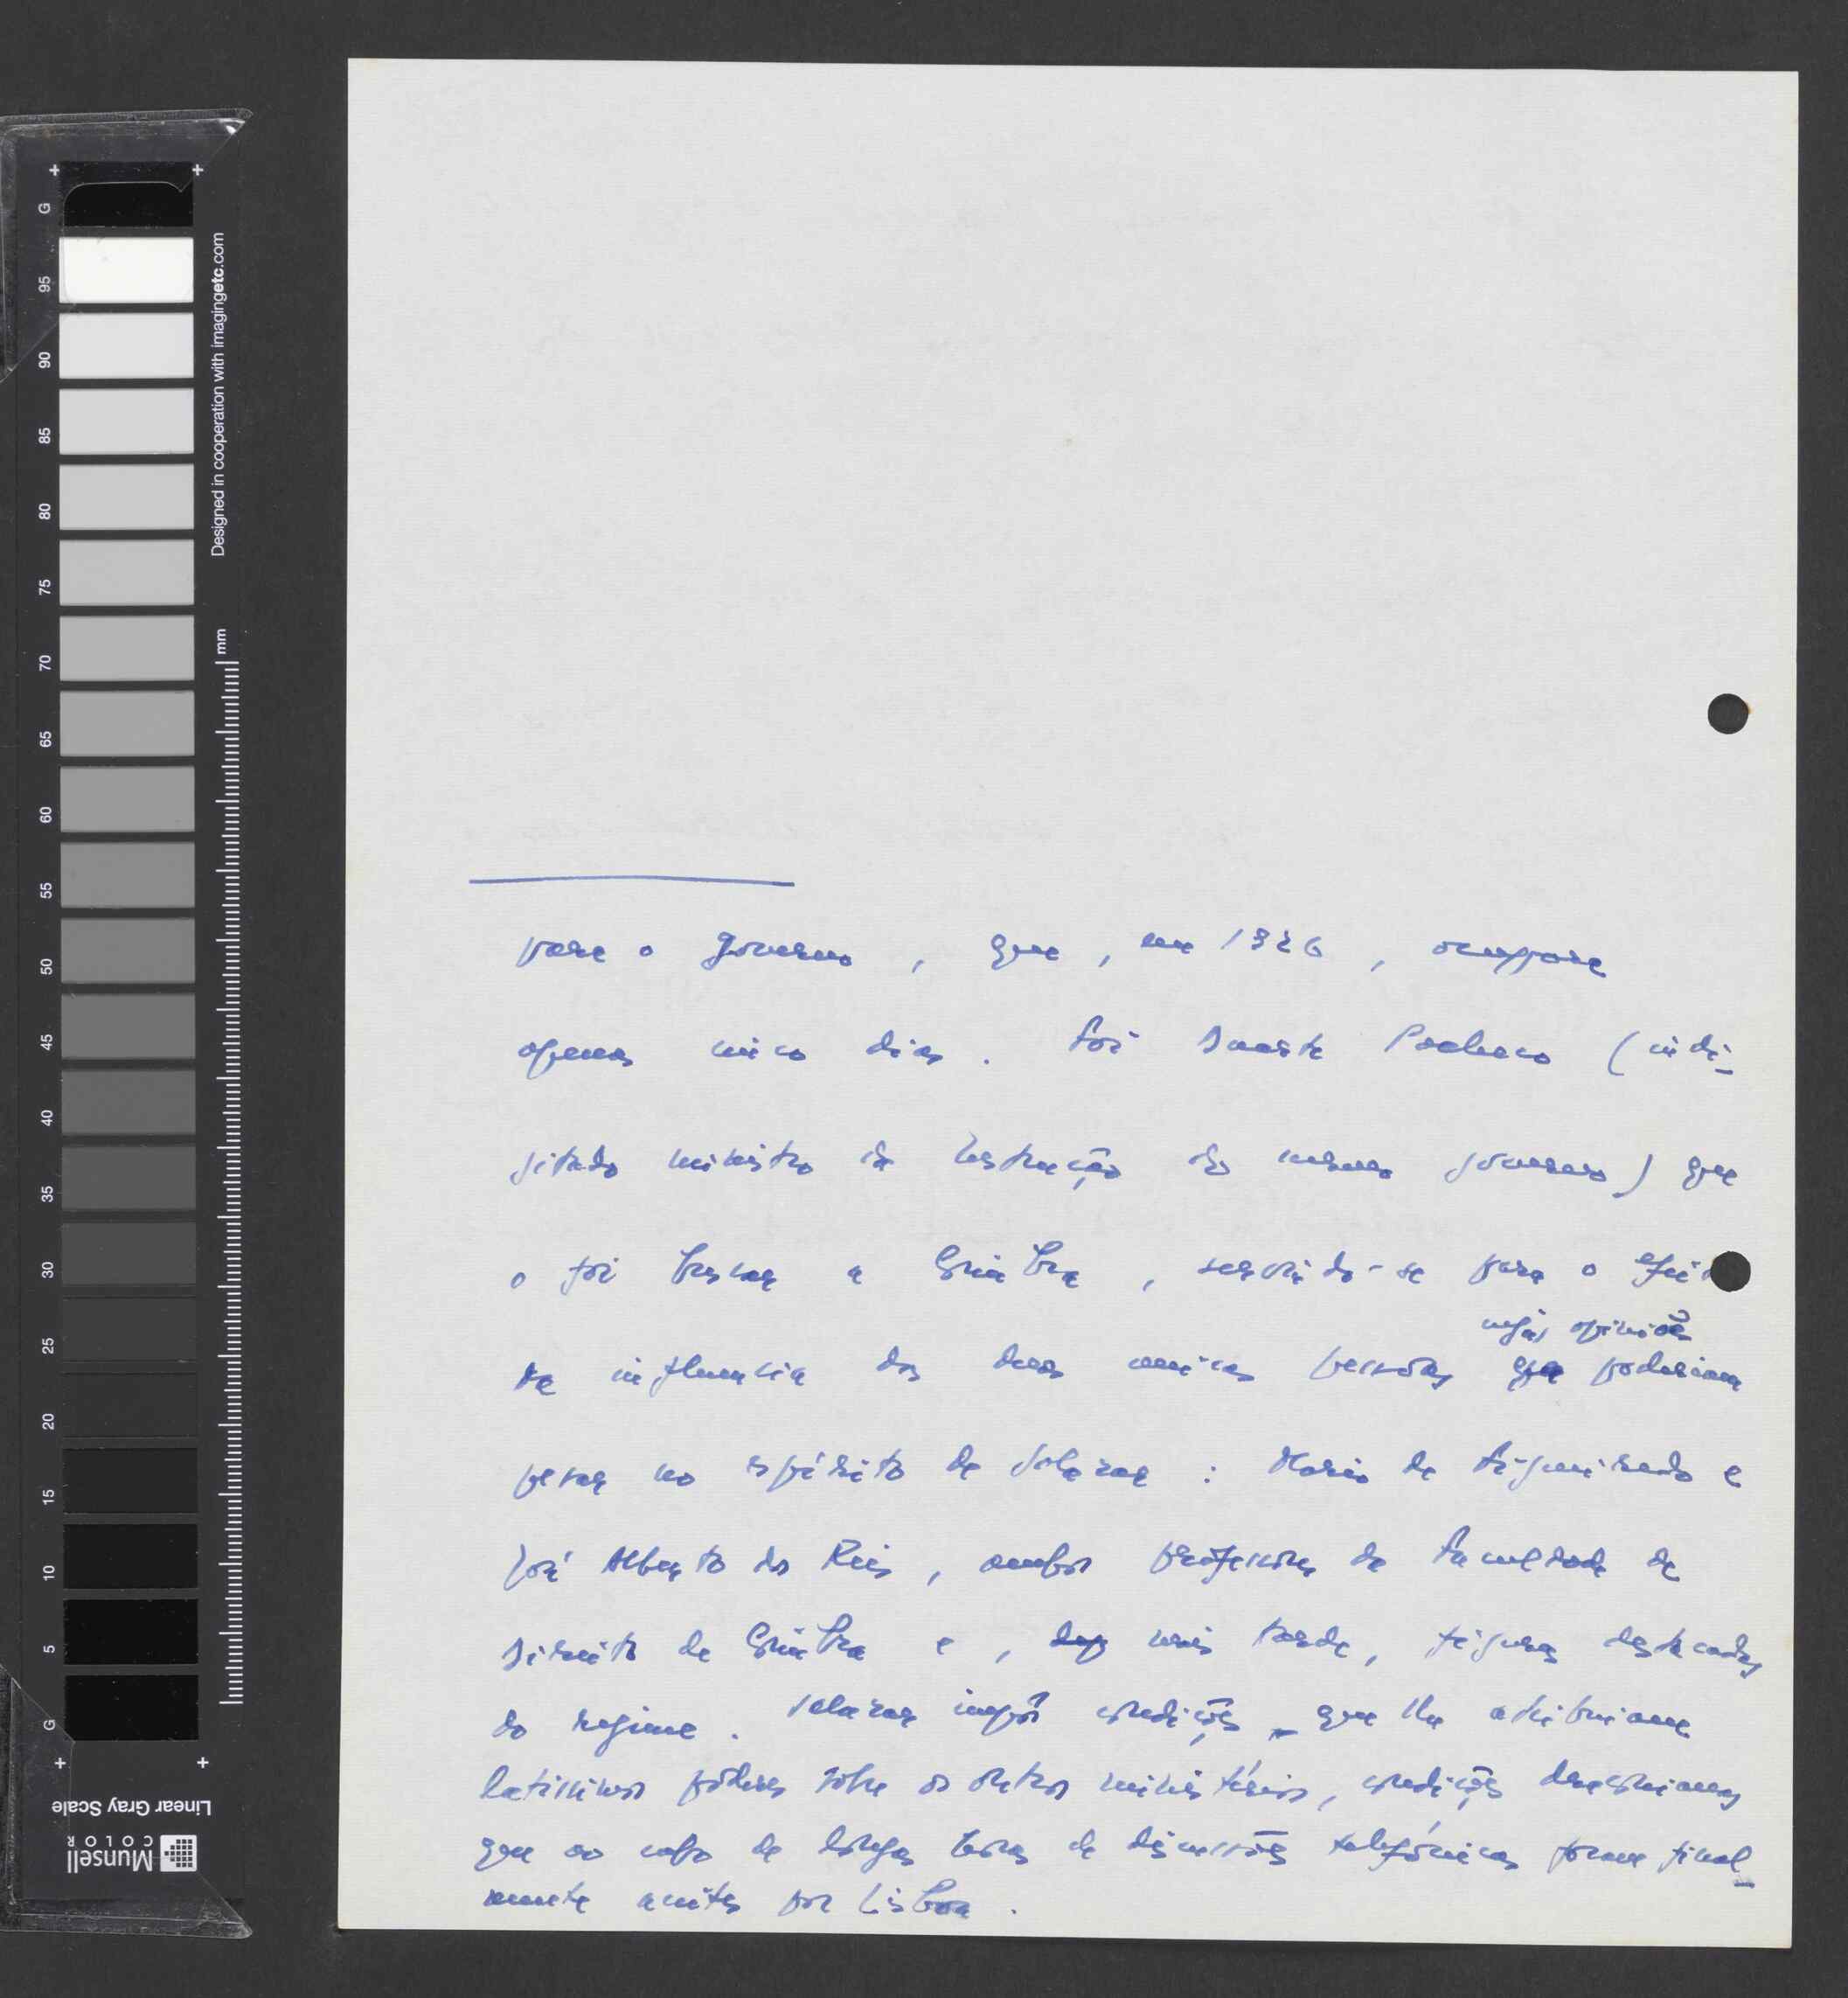 G 95 90 85 80 75 70 65 60 55 50 45 40 35 30 25 20 15 10 5 G
Designed in cooperation with imagingetc.com
mm
Linear Gray Scale
Munsell
COLOR
para o governo, que, em 1926, ocupara
apenas cinco dias. Foi Duarte Pacheco (indi-
gitado ministro da Instrução do mesmo governo) que
o foi buscar a Coimbra, servindo-se para o efeito
cujas opiniões
da influencia das duas unicas pessoas que poderiam
pesar no espírito de Salazar: Mario de Figueiredo e
José Alberto dos Reis, ambos professores da Faculdade de
Direito de Coimbra e, mais tarde, figuras destacadas
do regime. Salazar impôs condições que lhe atribuiam
latissimos pôderes sobre os outros ministérios, condições draconianas
que ao cabo de longas horas de discussões telefónicas foram final-
mente aceites por Lisboa.